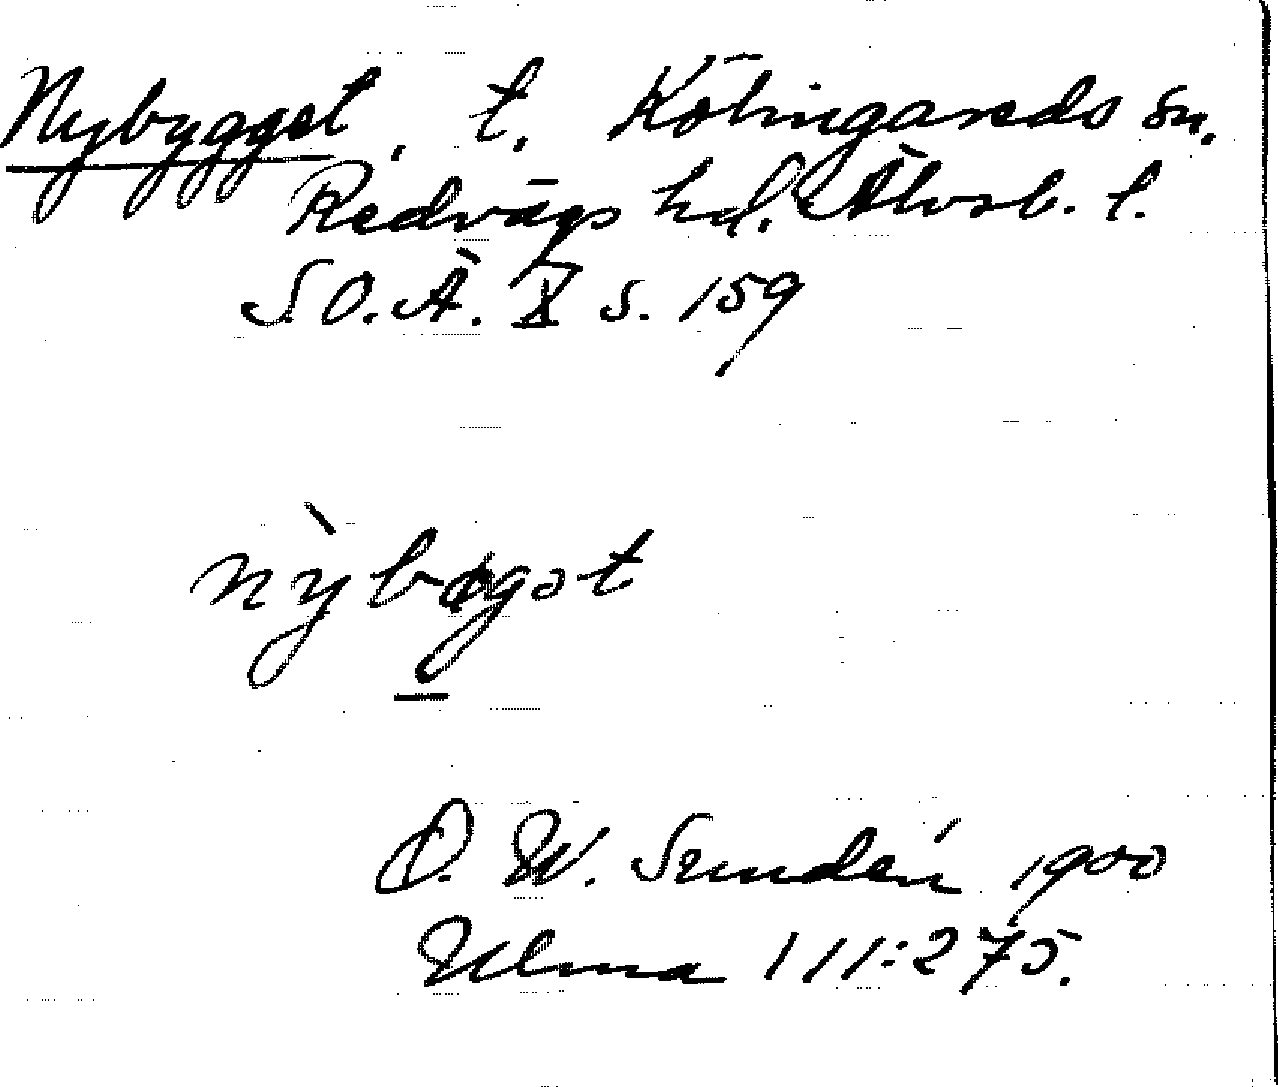 Nybygget, t. Kölingareds sn.
Redvägs hd. Älvsb. l.
S.O.Ä. X s. 159
nỳbøgət
D. W. Sundén 1900
Ulma 111:275.